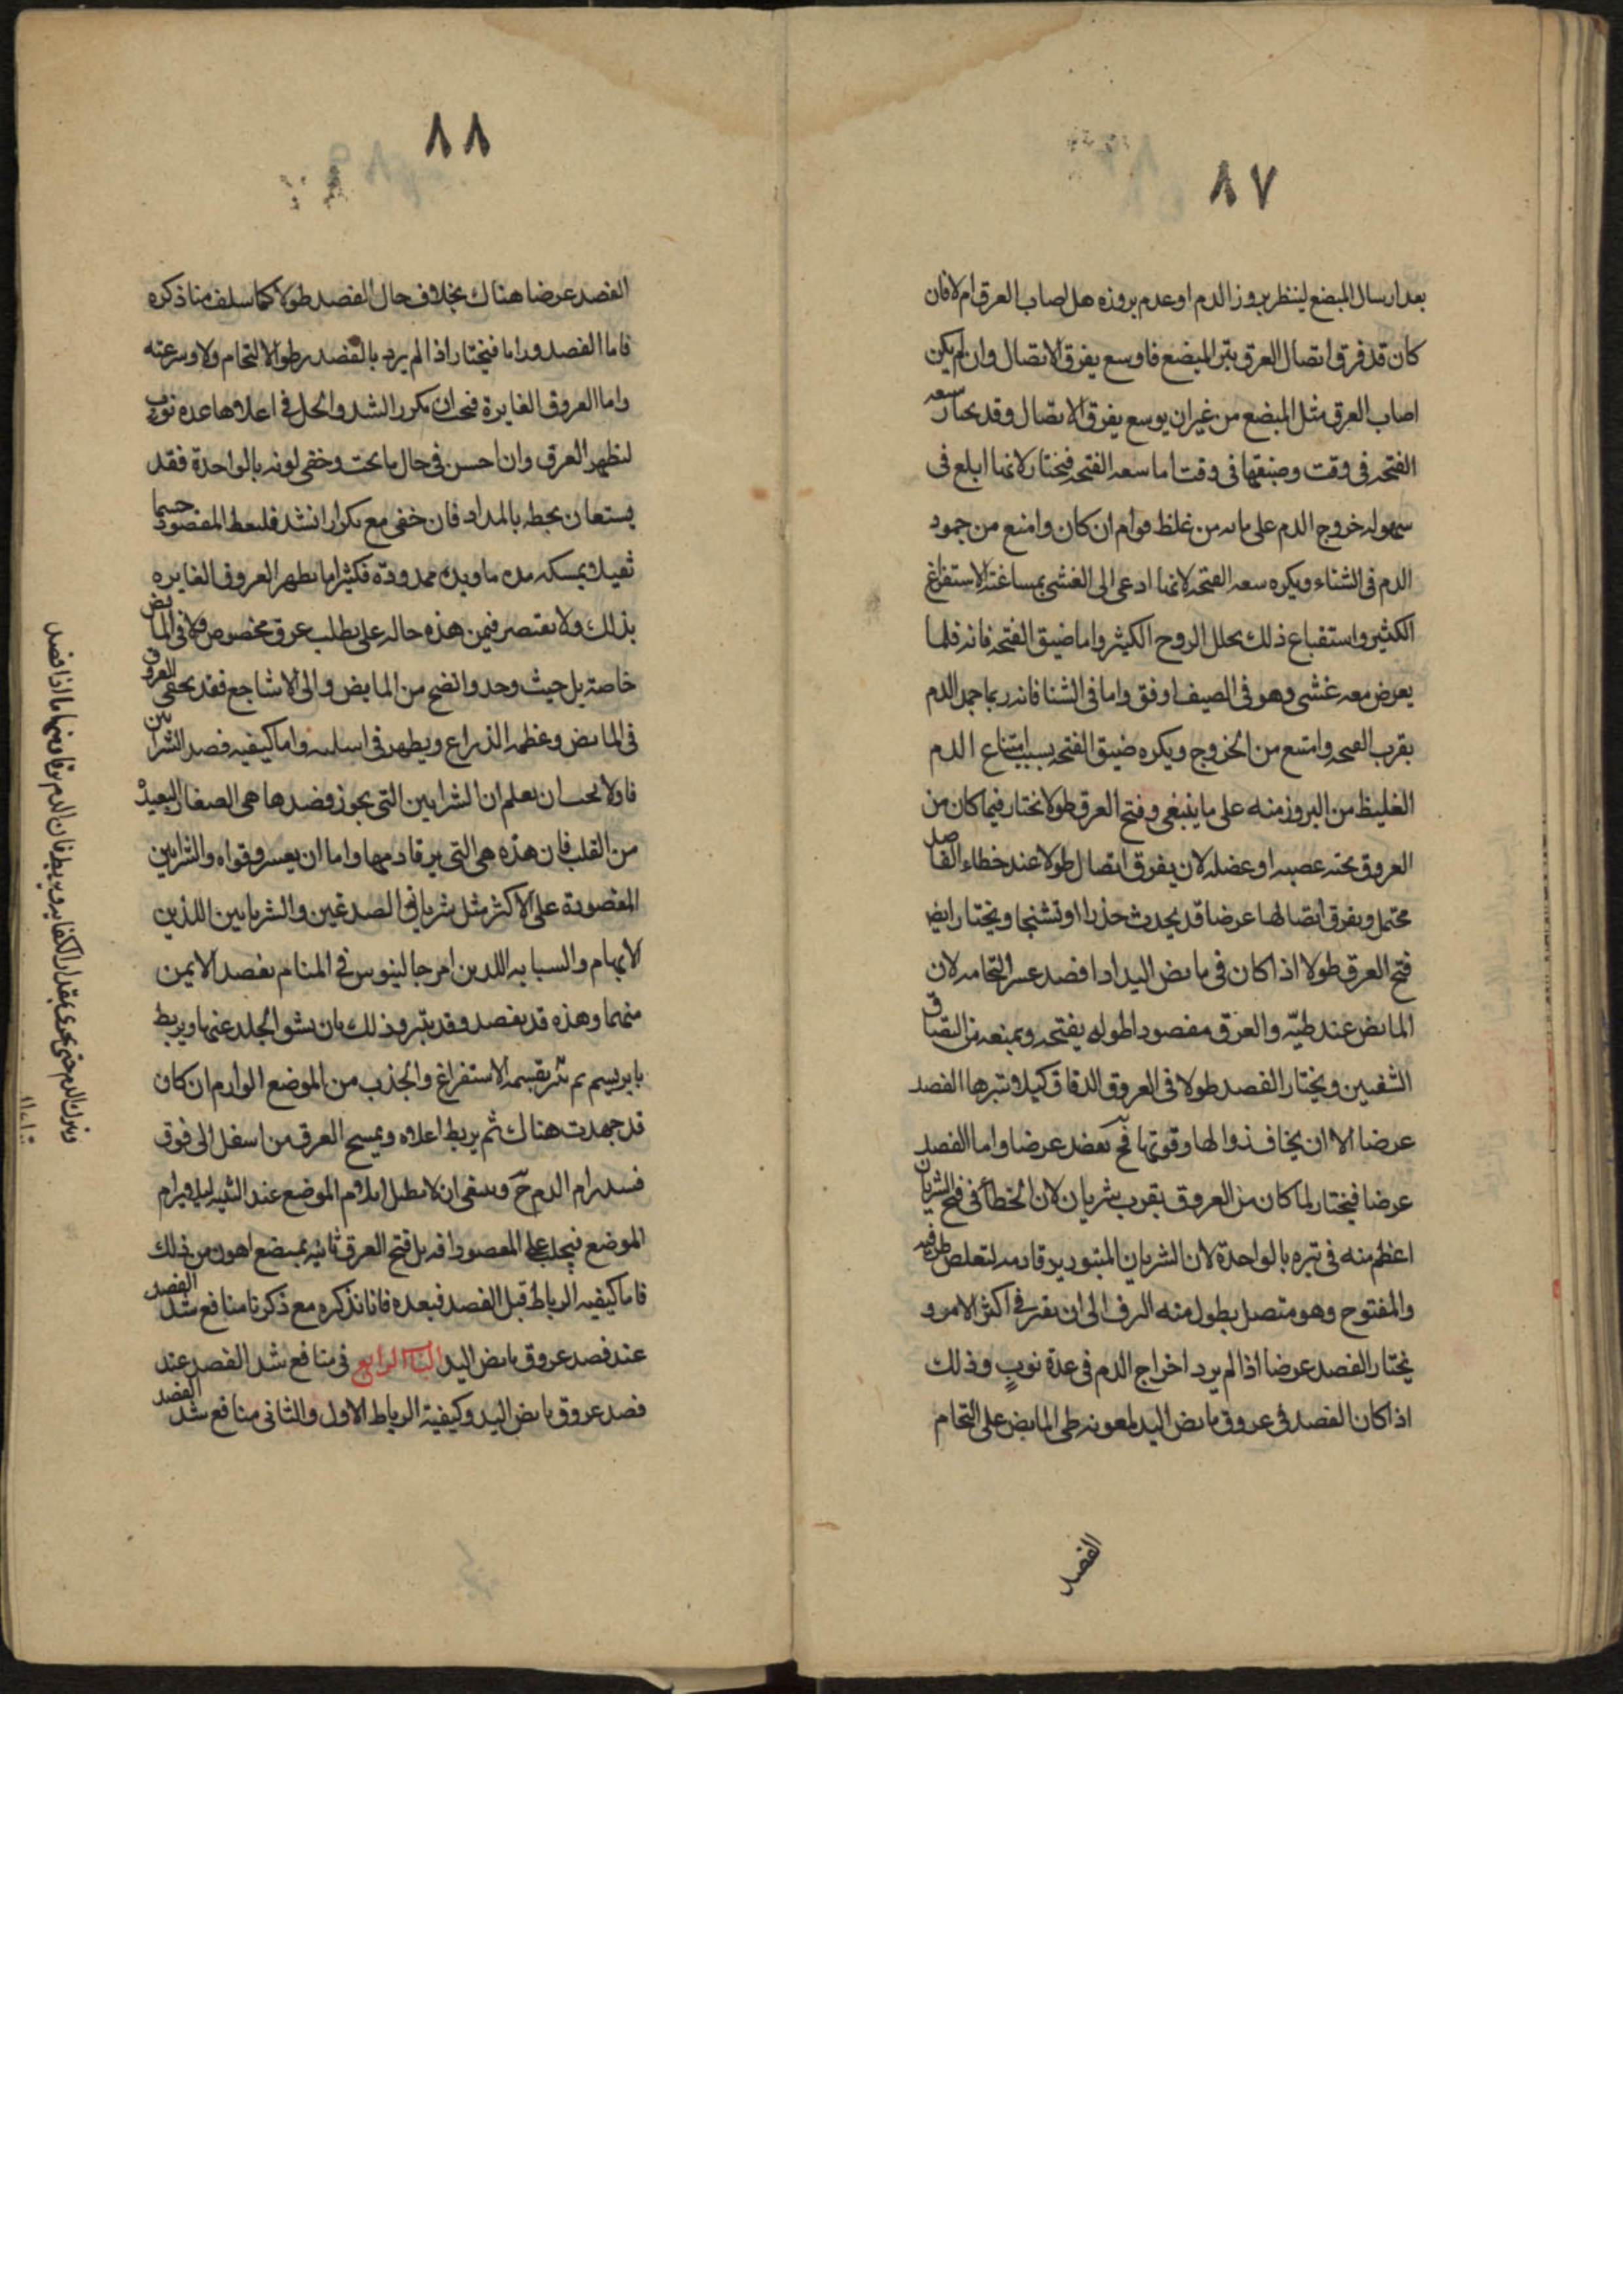 ٨٧
بعد ارسال المبضع لينظر بروز الدم او عدم بروزه هل اصاب العرق ام لا فان
كان قد فرق اتصال العرق بتبر المبضع فاوسع يفرق الاتصال وان لم يكن
اصاب العرق مثل المبضع من غير ان يوسع يفرق الاتصال وقد يختار سعه
الفتحه فى وقت وضيقها فى وقت اما سعه الفتحه فيختار لانها ابلغ فى
سهوله خروج الدم على ما به من غلظ قوام ان كان وامنع من جمود
الدم فى الشتاء ويكره سعه الفتحه لانها ادعى الى الغشى بمساغته الاستفراغ
الكثير واستقباع ذلك بحلل الروح الكثير واما ضيق الفتحه فانه قلما
يعرض معه غشى وهو فى الصيف اوفق واما فى الشتا فانه ربما جمد الدم
بقرب الفتحه وامتنع من الخروج ويكره ضيق الفتحه بسبب امتناع الدم
الغليظ من البروز منه على ما ينبغى وفتح العرق طولا نختار فيما كان من
العروق تحته عصبه او عضله لان يفرق اتصال طولا عند خطاء الفاصد
محتمل ويفرق اتصالها عرضا قد يحدث خذرا او تشنجا ويختار ايضا
فتح العرق طولا اذا كان فى مابض اليد اذا فصد عسر التحامه لان
المابض عند طيّه والعرق مفصود اطوله يفتحه ويمنعه من التصاق
الشفتين ويختار الفصد طولا فى العروق الدقاق كيلا تبترها الفصد
عرضا الا ان يخاف زوالها وقوتها فح تفصد عرضا واما الفصد
عرضا فيختار لما كان من العروق بقرب شريان لان الخطأ فى فتح الشريان
اعظم منه فى تبره بالواحدة لان الشريان المبتور يرقا دمه لتقلص طرفيه
والمفتوح وهو متصل يطول منه النزف الى ان يقتل فى اكثر الامر و
نختار الفصد عرضا اذا لم يرد اخراج الدم فى عدة نوبٍ وذلك
اذا كان الفصد فى عروق مابض اليد لمعونه طى المابض على التحام
الفصد
٨٨
الفصد عرضا هناك بخلاف حال الفصد طولا كما سلف منا ذكره
فاما الفصد ورابا فيختار اذا لم يرد بالفصد بطوا الالتحام ولا وسرعته
واما العروق الغايرة فيجب ان يكرر الشد والحل فى اعلاها عدة نوب
لتظهر العرق وان احسن فى حال ما تحت وخفى لونه بالواحدة فقد
يستعان بخطه بالمداد فان خفى مع تكرار الشد فليعط المفصود جسما
ثقيلا يمسكه مدة ما ويده ممدودة فكثيرا ما يظهر العروق الغايره
بذلك ولا يقتصر فيمن هذه حاله على طلب عرق مخصوص ولا فى المابض
خاصة بل حيث وجد واتضح من المابض والى الاشاجع فقد يخفى العروق
فى المابض وعظمه الذراع ويظهر فى اسلته واما كيفيه فصد الشرايين
فاولا يجب ان يعلم ان الشرايين التى يجوز فصدها هى الصغار البعيدة
من القلب فان هذه هى التى يرقا دمها واما ان يعسر رقواه والشرايين
المفصودة على الاكثر مثل شريانى الصدغين والشريانين اللذين
الابهام والسبابه اللذين امر جالينوس فى المنام بفصد الايمن
منهما وهذه قد يفصد وقد يتبر وذلك بان يشق الجلد عنها ويربط
بابريسم ثم تبر بقسمه الاستفراغ والجذب من الموضع الوارم ان كان
قد جهدت هناك ثم يربط اعلاه ويمسح العرق من اسفل الى فوق
الدم ح وينبغى ان لا يطيل ايلام الموضع عند التثنيه ليلا يرام
الموضع فيجلب على المفصود افه بل فتح العرق ثانيه بمبضع اهون من ذلك
فاما كيفيه الرباط قبل الفصد فبعده فانا نذكره مع ذكرنا منافع شد الفصد
عند فصد عروق مابض اليد الباب الرابع فى منافع شد الفصد عند
فصد عروق مابض اليد وكيفية الرباط الاول والثانى منافع شد الفصد